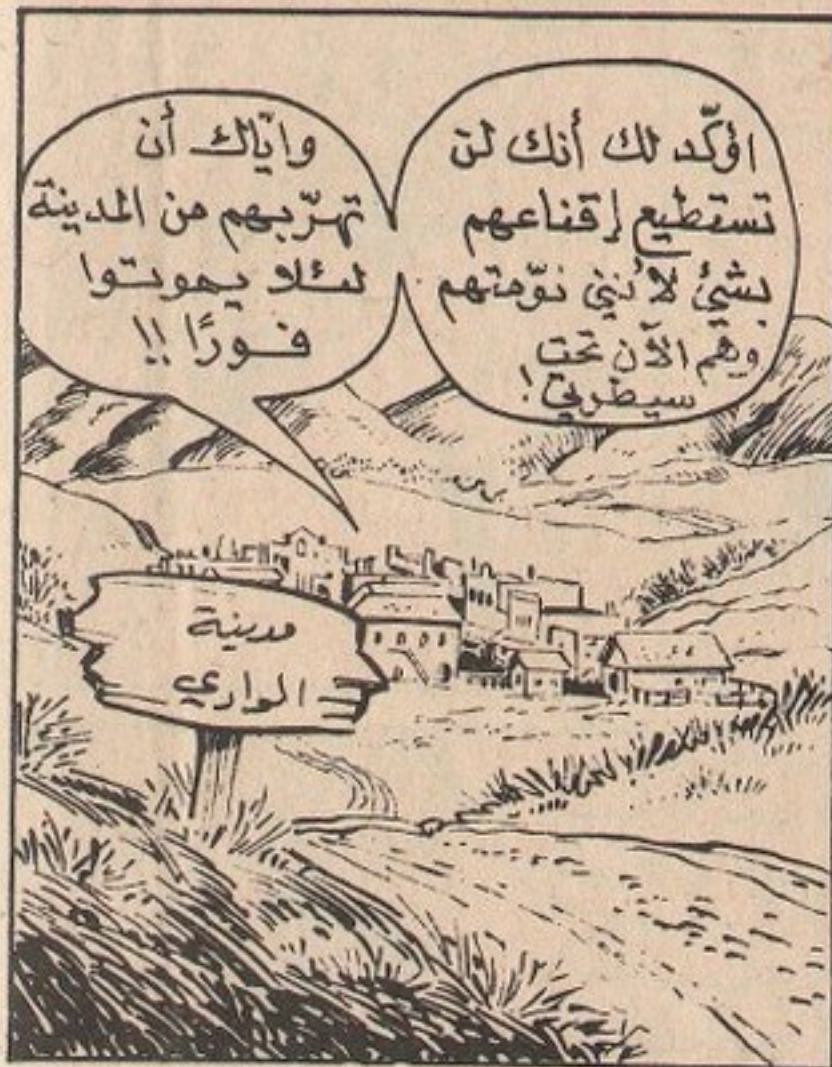 اؤكّد لك أنك لن
تستطيع إقناعهم
بشيْ لأنني نوّمتهم
وهم الآن تحت
سيطرتي !
واتّاك أن
تهرّبهم من المدينة
لئلا يموتوا
فورًا !!
مدينة
الوادي